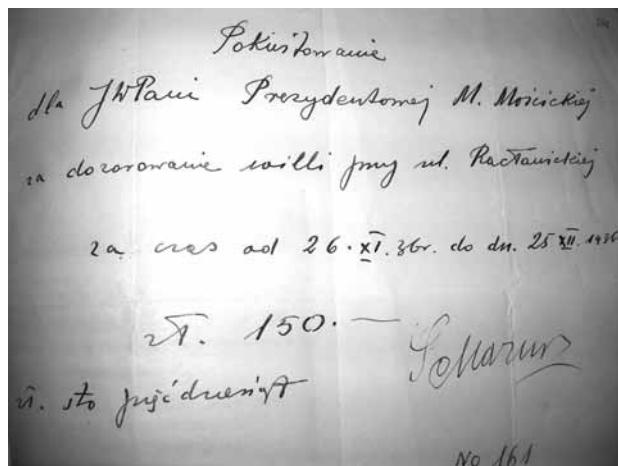 Pokwitowanie
dla JWPani Prezydentowej M. Mościckiej
za dozorowanie willi przy ul. Racławickiej
za czas od 26.XI.36r. do dn. 25 XII. 1936
zł. 150.—
zł. sto pięćdziesiąt
No 161